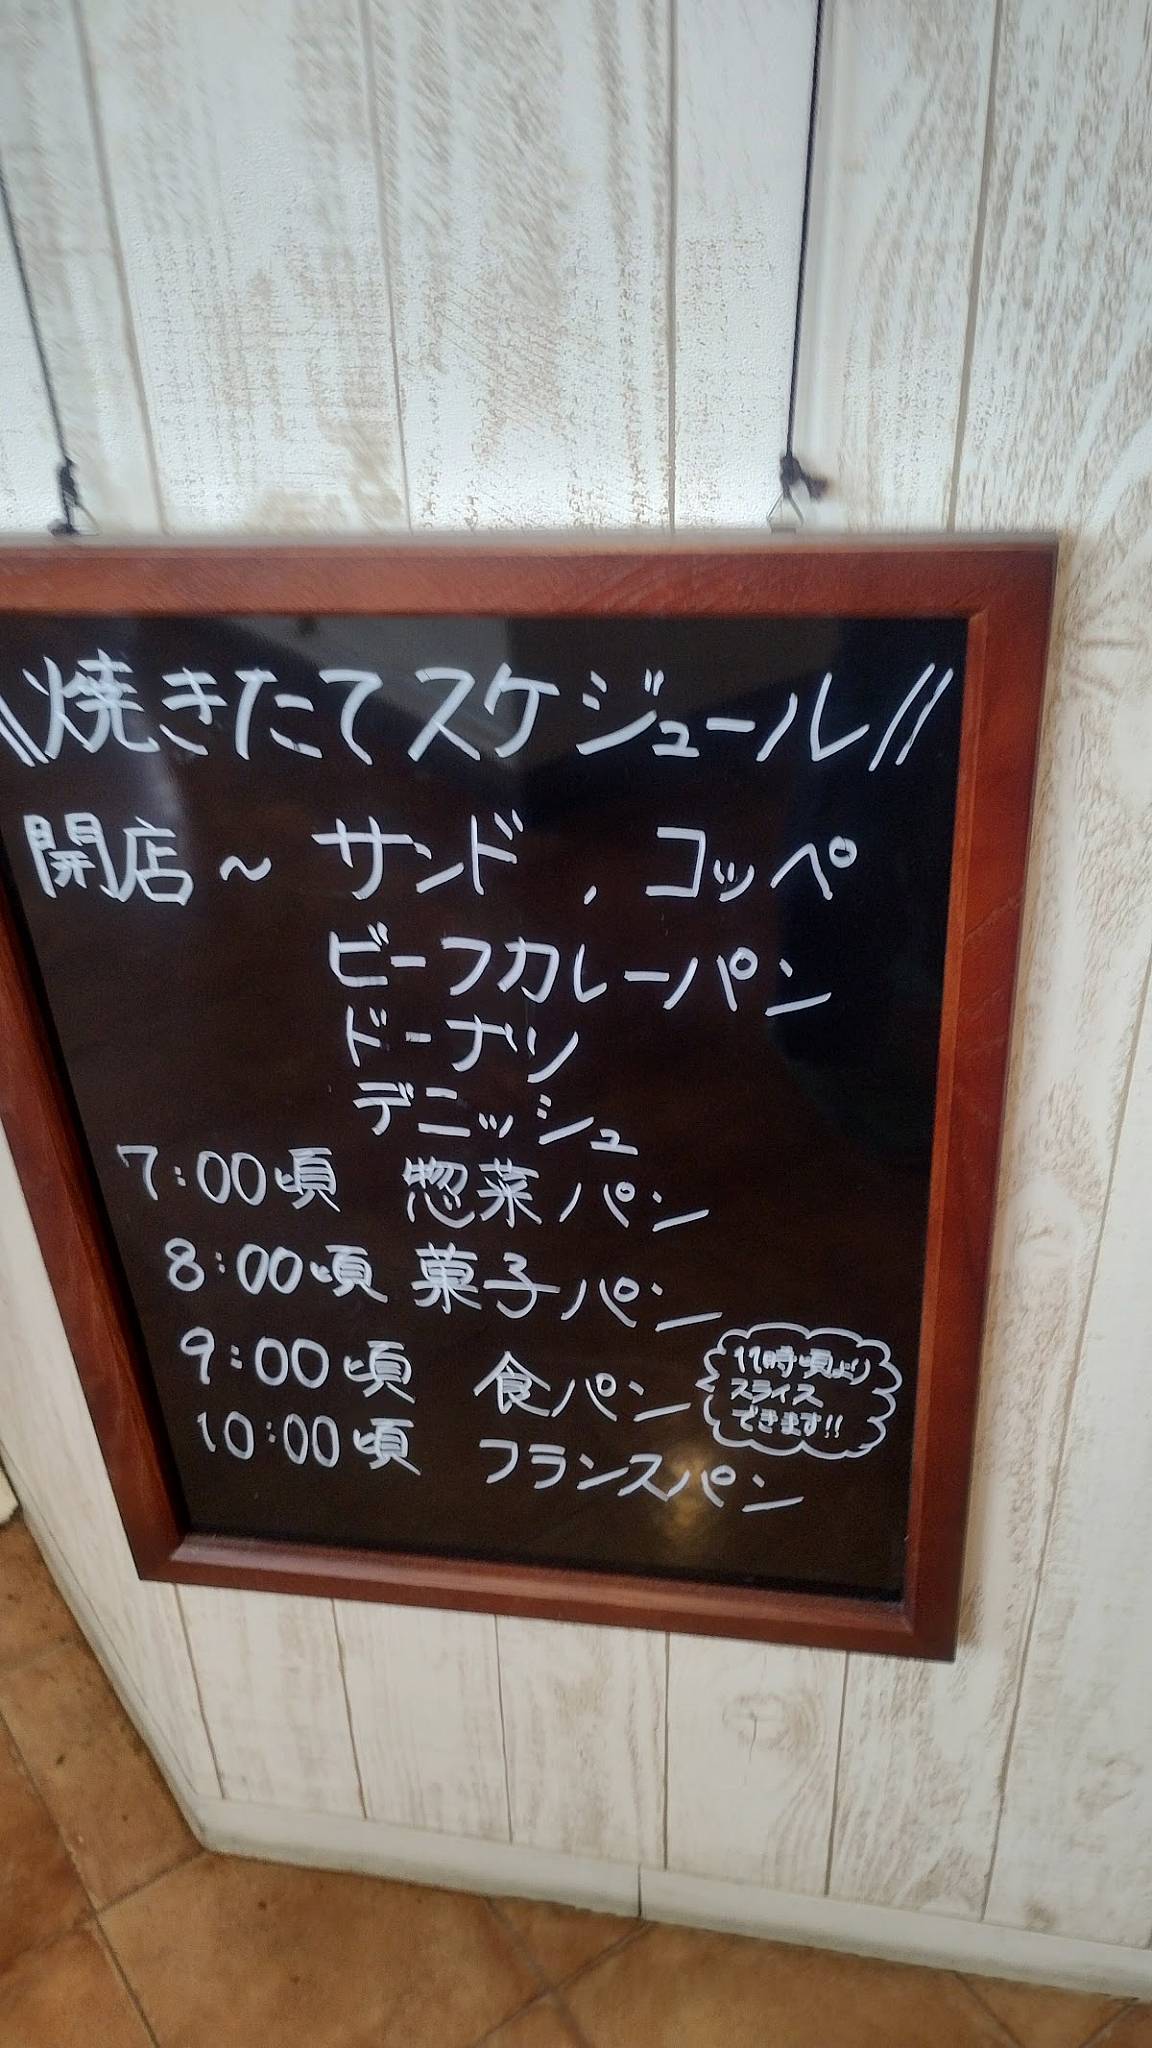 \\焼きたてスケジュール//
開店～ サンド, コッペ
ビーフカレーパン
ドーナツ
デニッシュ
7:00頃 惣菜パン
8:00頃 菓子パン
9:00頃 食パン
11時頃より
スライス
できます!!
10:00頃 フランスパン